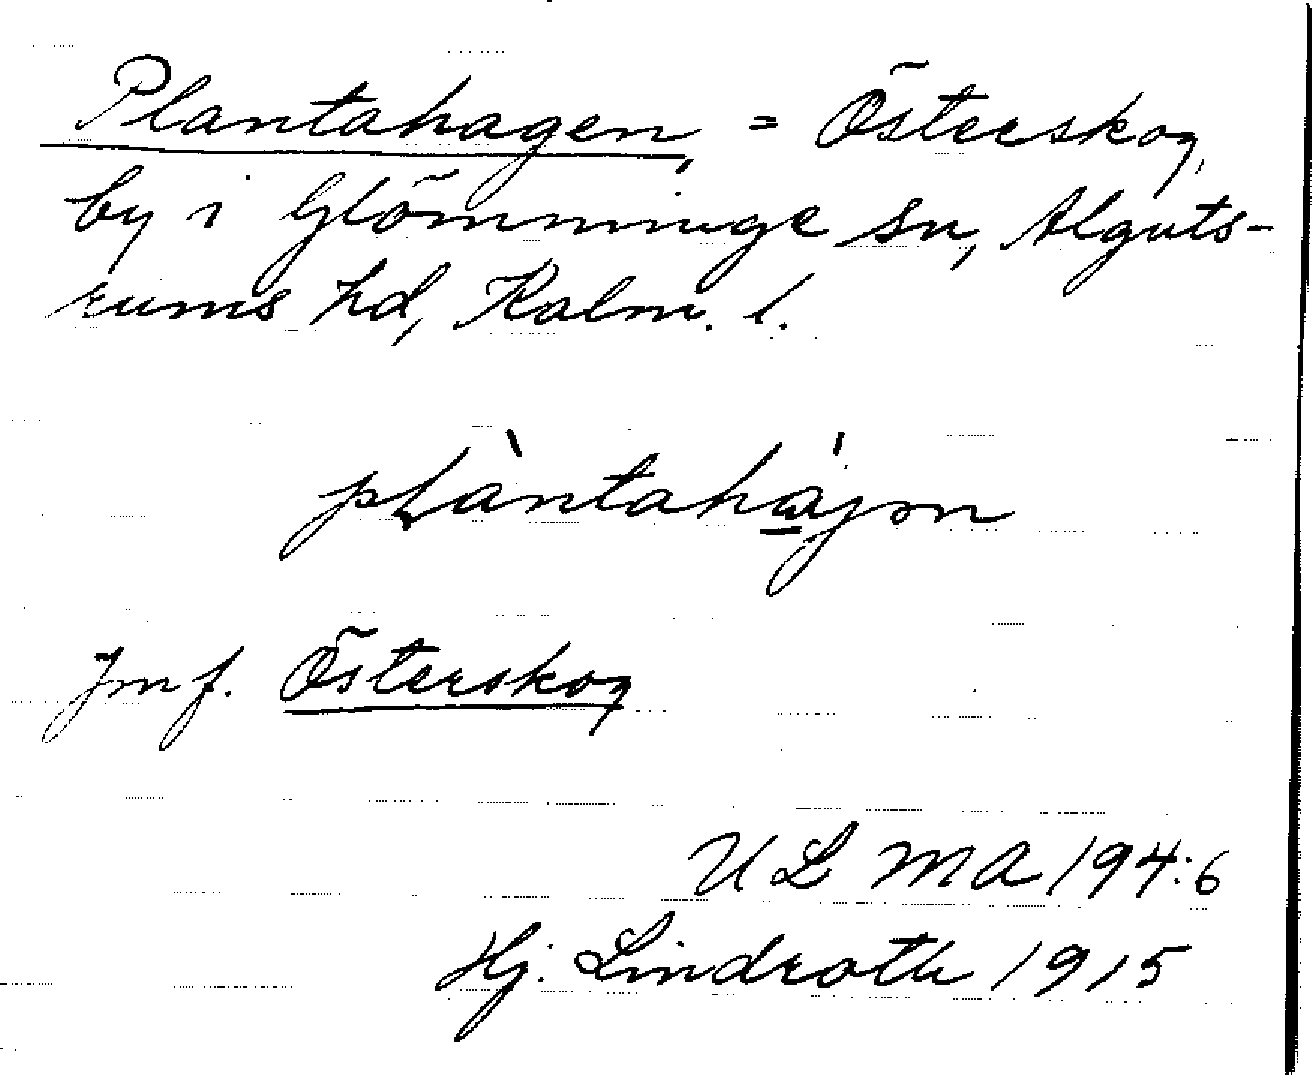 Plantahagen, = Österskog,
by i Glömminge sn, Alguts-
rums hd, Kalm. l.
plàntahájən
Jmf. Österskog
ULMA 194:6
Hj. Lindroth 1915